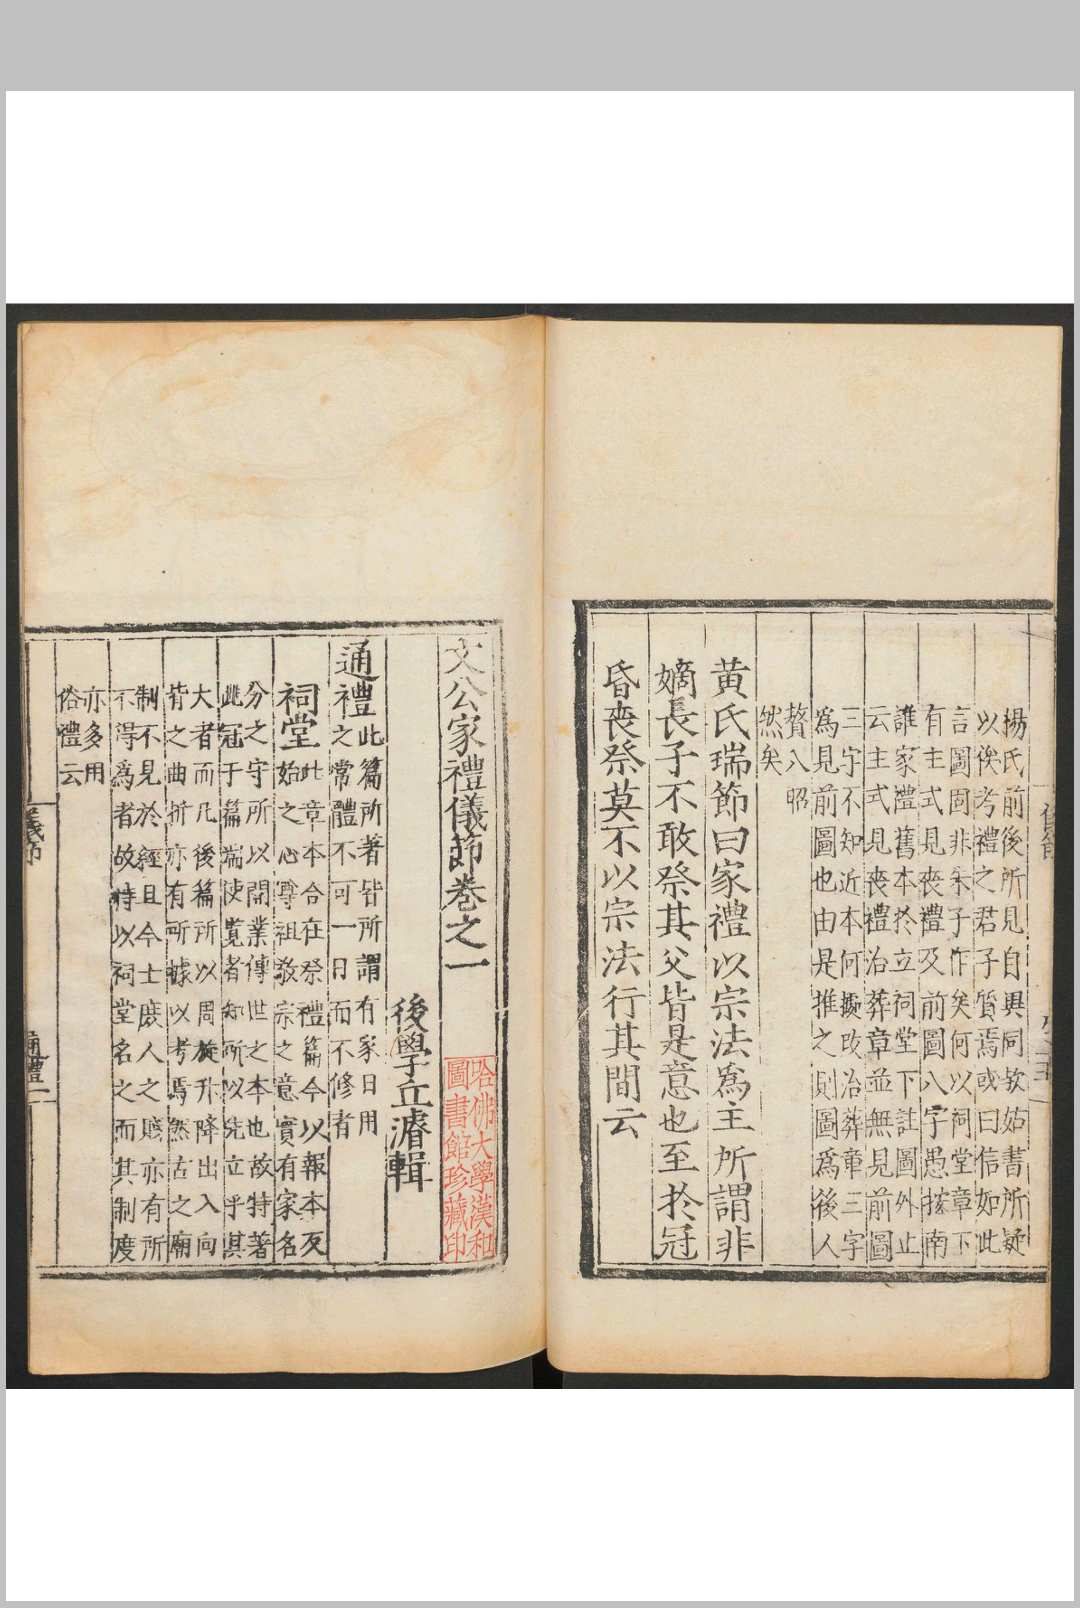 楊氏前後所見自異同敢姑書所疑
以俟考禮之君子質焉或曰信如此
言圖固非朱子作矣何以祠堂章下
有主式見喪禮及前圖八字愚按南
雝家禮舊本於立祠堂下註圖外止
云主式見喪禮治葬章並無見前圖
三字不知近本何據改治葬章三字
為見前圖也由是推之則圖為後人
贅入昭
然矣
黃氏瑞節曰家禮以宗法為主所謂非
嫡長子不敢祭其父皆是意也至於冠
昏喪祭莫不以宗法行其間云
文公家禮儀節卷之一
哈佛大學漢和
圖書館珍藏印
後學丘濬輯
通禮此篇所著皆所謂有家日用
之常體不可一日而不修者
祠堂此章本合在祭禮篇今以報本反
始之心尊祖敬宗之意實有家名
分之守所以開業傳世之本也故特著
此冠于篇端使覽者知所以先立乎其
大者而凡後篇所以周旋升降出入向
背之曲折亦有所據以考焉然古之廟
制不見於經且今士庶人之賤亦有所
不得為者故特以祠堂名之而其制度
亦多用
俗禮云
儀節
通禮一